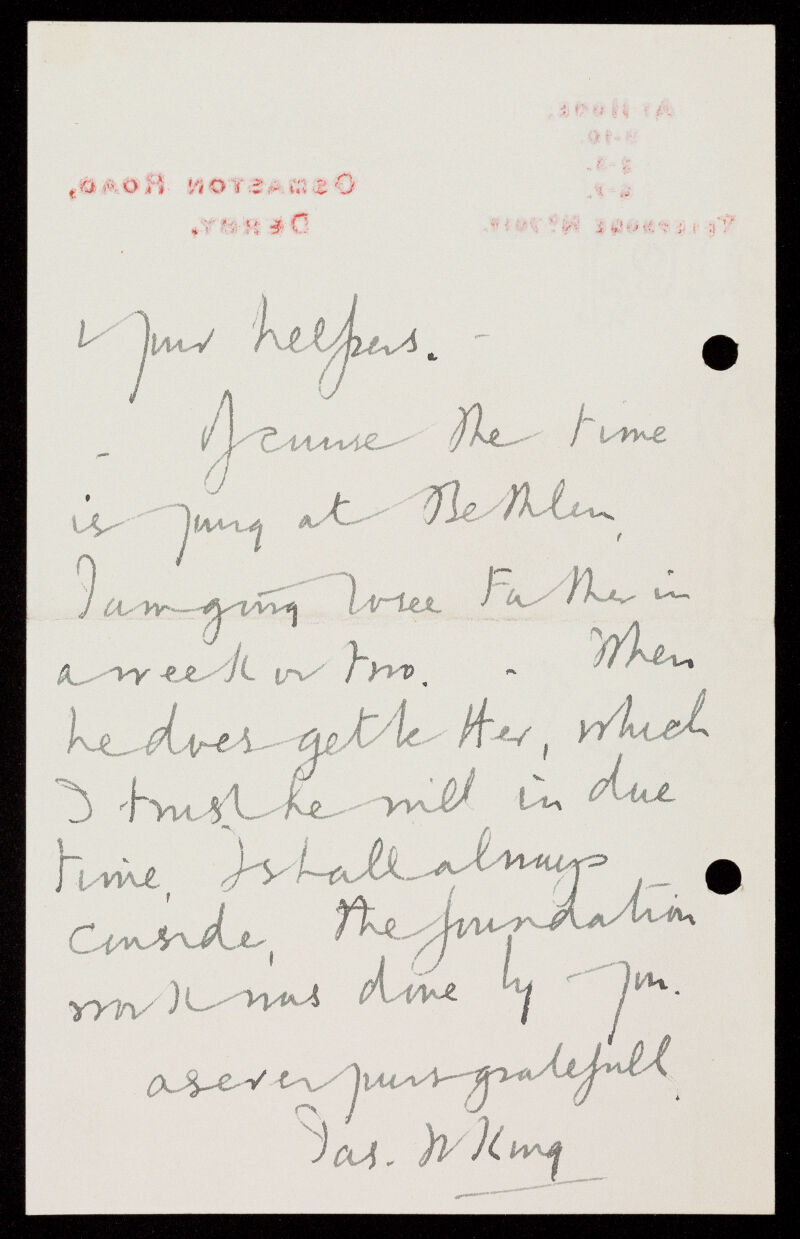 At Home,
9-10.
2-3.
6-7.
Osmaston Road,
Derby.
Telephone No
your helpers. -
- Of course the time
is young at Bethlem,
I am going to see Father in
a week or two. - When
he does get better, which
I trust he will in due
time, I shall always
consider, the foundation
work was done by you.
as ever yours gratefull
Jas. W King